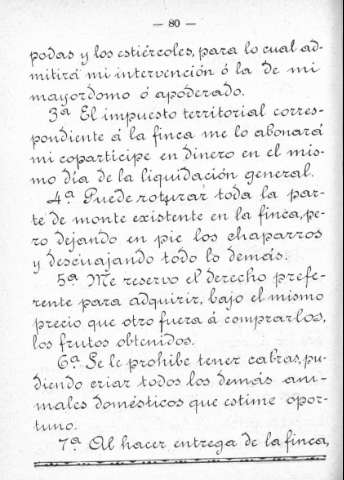 — 80 —
podas y los estiércoles, para lo cual ad-
mitirá mi intervención ó la de mi
mayordomo ó apoderado.
3ª El impuesto territorial corres-
pondiente á la finca me lo abonará
mi coparticipe en dinero en el mis-
mo día de la liquidación general.
4ª Puede roturar toda la par-
te de monte existente en la finca, pe-
ro dejando en pie los chaparros
y descuajando todo lo demás.
5ª Me reservo el derecho prefe-
rente para adquirir, bajo el mismo
precio que otro fuera á comprarlos,
los frutos obtenidos.
6ª Se le prohibe tener cabras, pu-
diendo criar todos los demás ani-
males domésticos que estime opor-
tuno.
7ª Al hacer entrega de la finca,